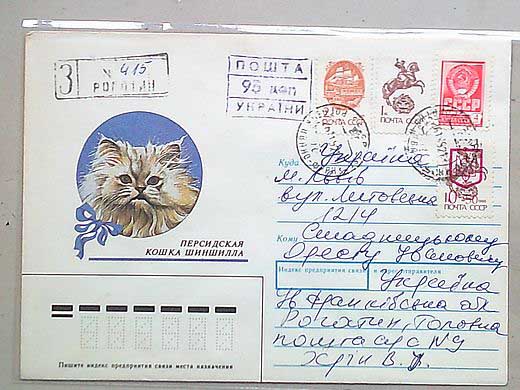 З № 415
РОГОТИН
ПОШТА
95 коп
УКРАЇНИ
ПОЧТА СССР
1к ПОЧТА СССР
СССР
10 к
ПОЧТА СССР
ПЕРСИДСКАЯ
КОШКА ШИНШИЛЛА
Куда Україна
м. Львів
вул. Литовська
12/4
Кому
Оресту
Индекс предприятия связи и отправителя
Україна
Ів Франківська обл
Рогатин, Головна
пошта а/с №9
В.
Пишите индекс предприятия связи места назначения